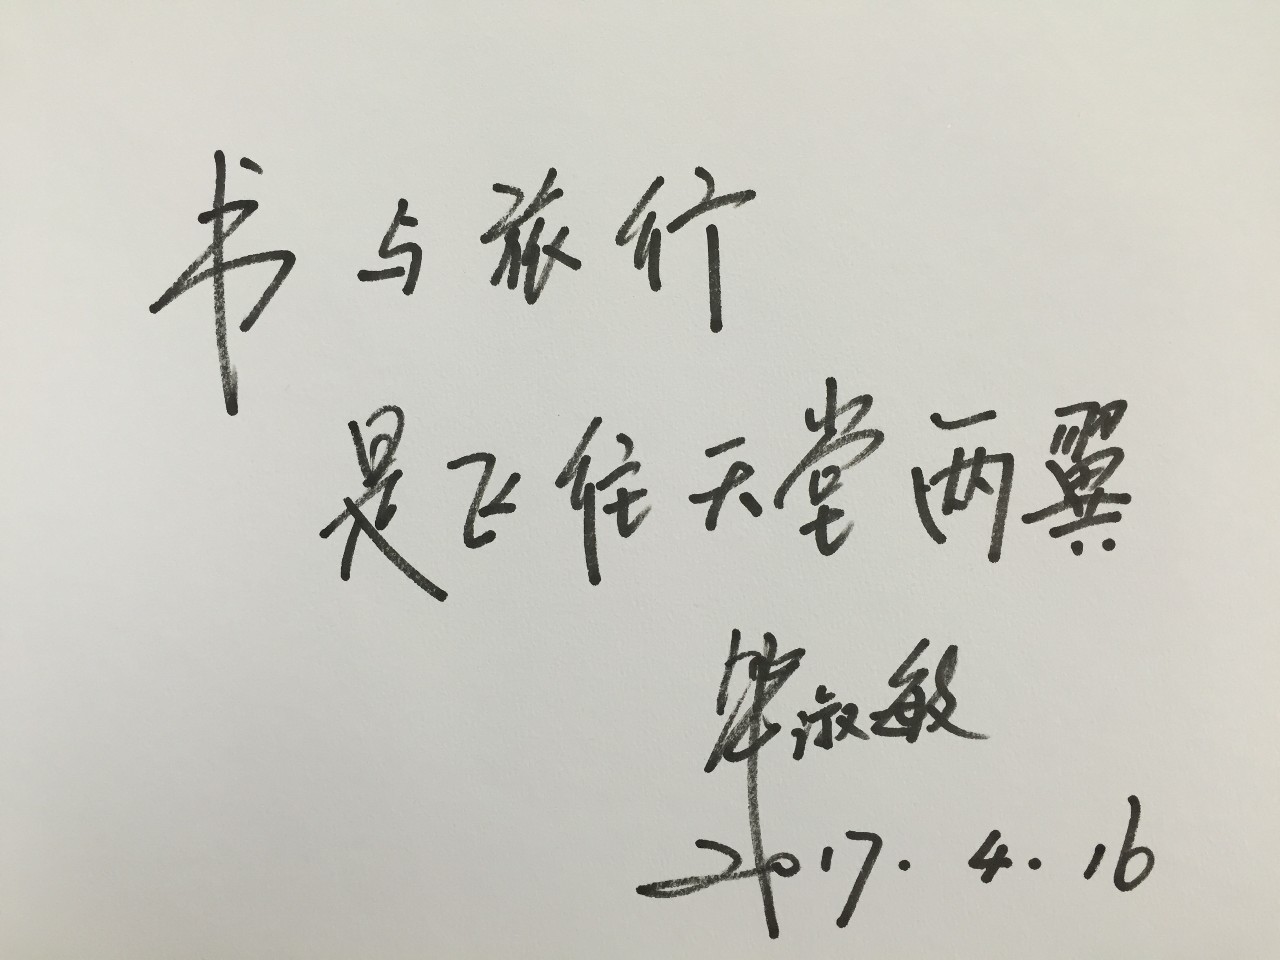 书与旅行
是飞往天堂两翼
毕淑敏
2017.4.16